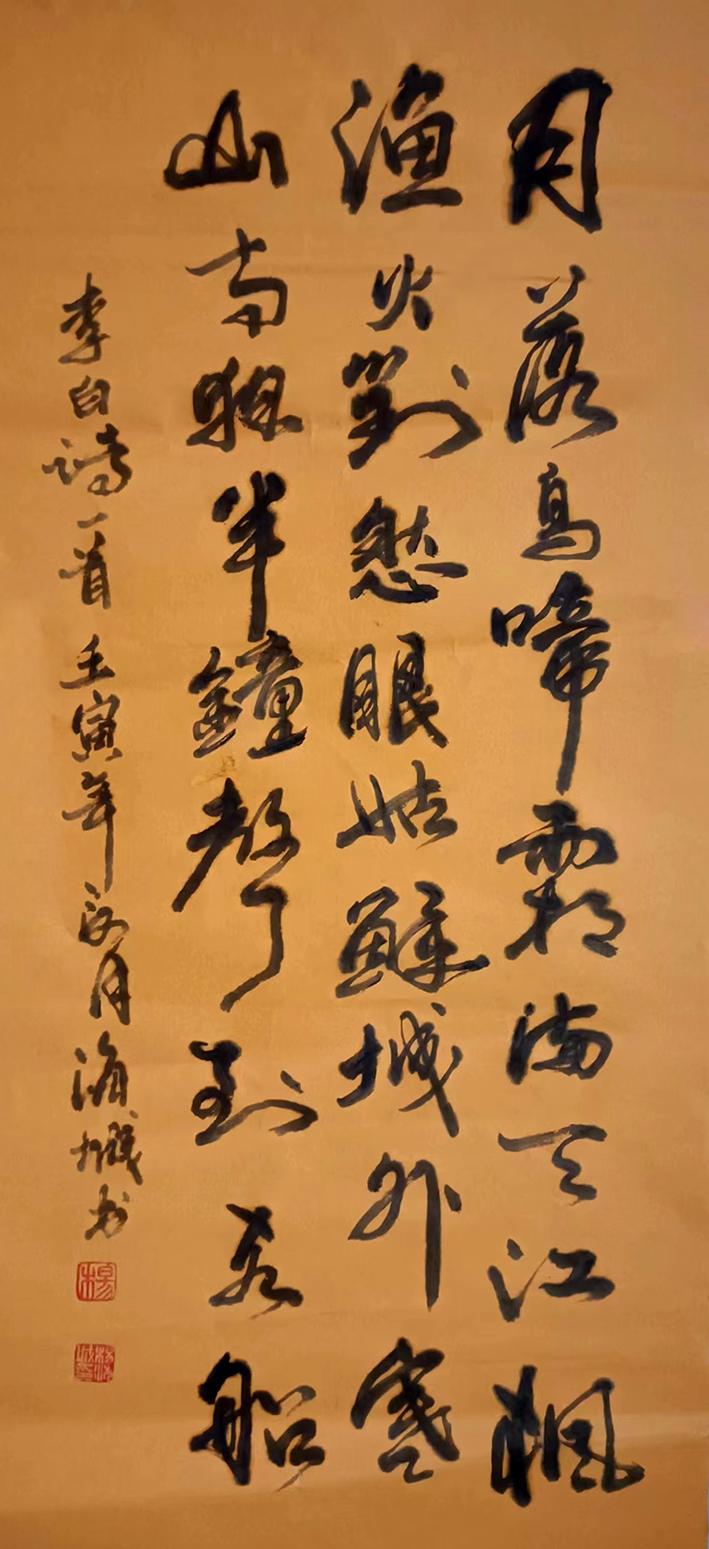 月落烏啼霜滿天江楓
渔火對愁眠姑蘇城外寒
山寺夜半鐘聲到客船
李白詩一首 壬寅年月海城书
楊